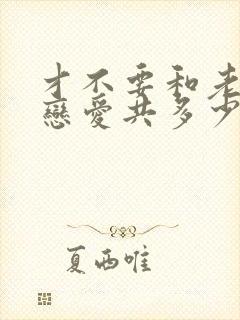 才不要和老
戀愛共多少
夏西唯